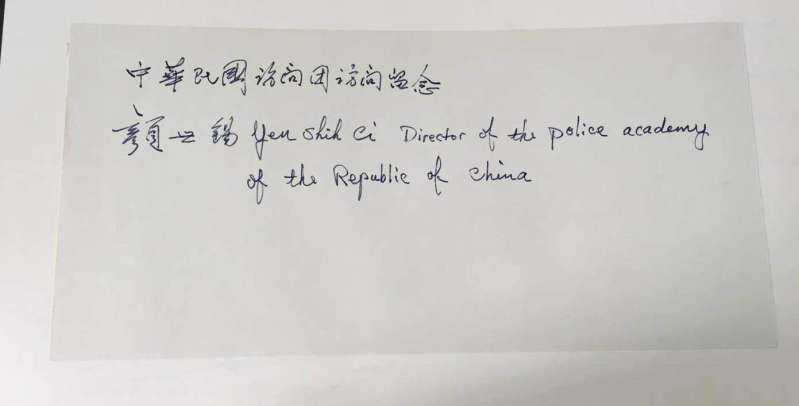 中華民國訪问团訪问留念
顏世錫 Yen Shih Ci Director of the police academy
of the Republic of China